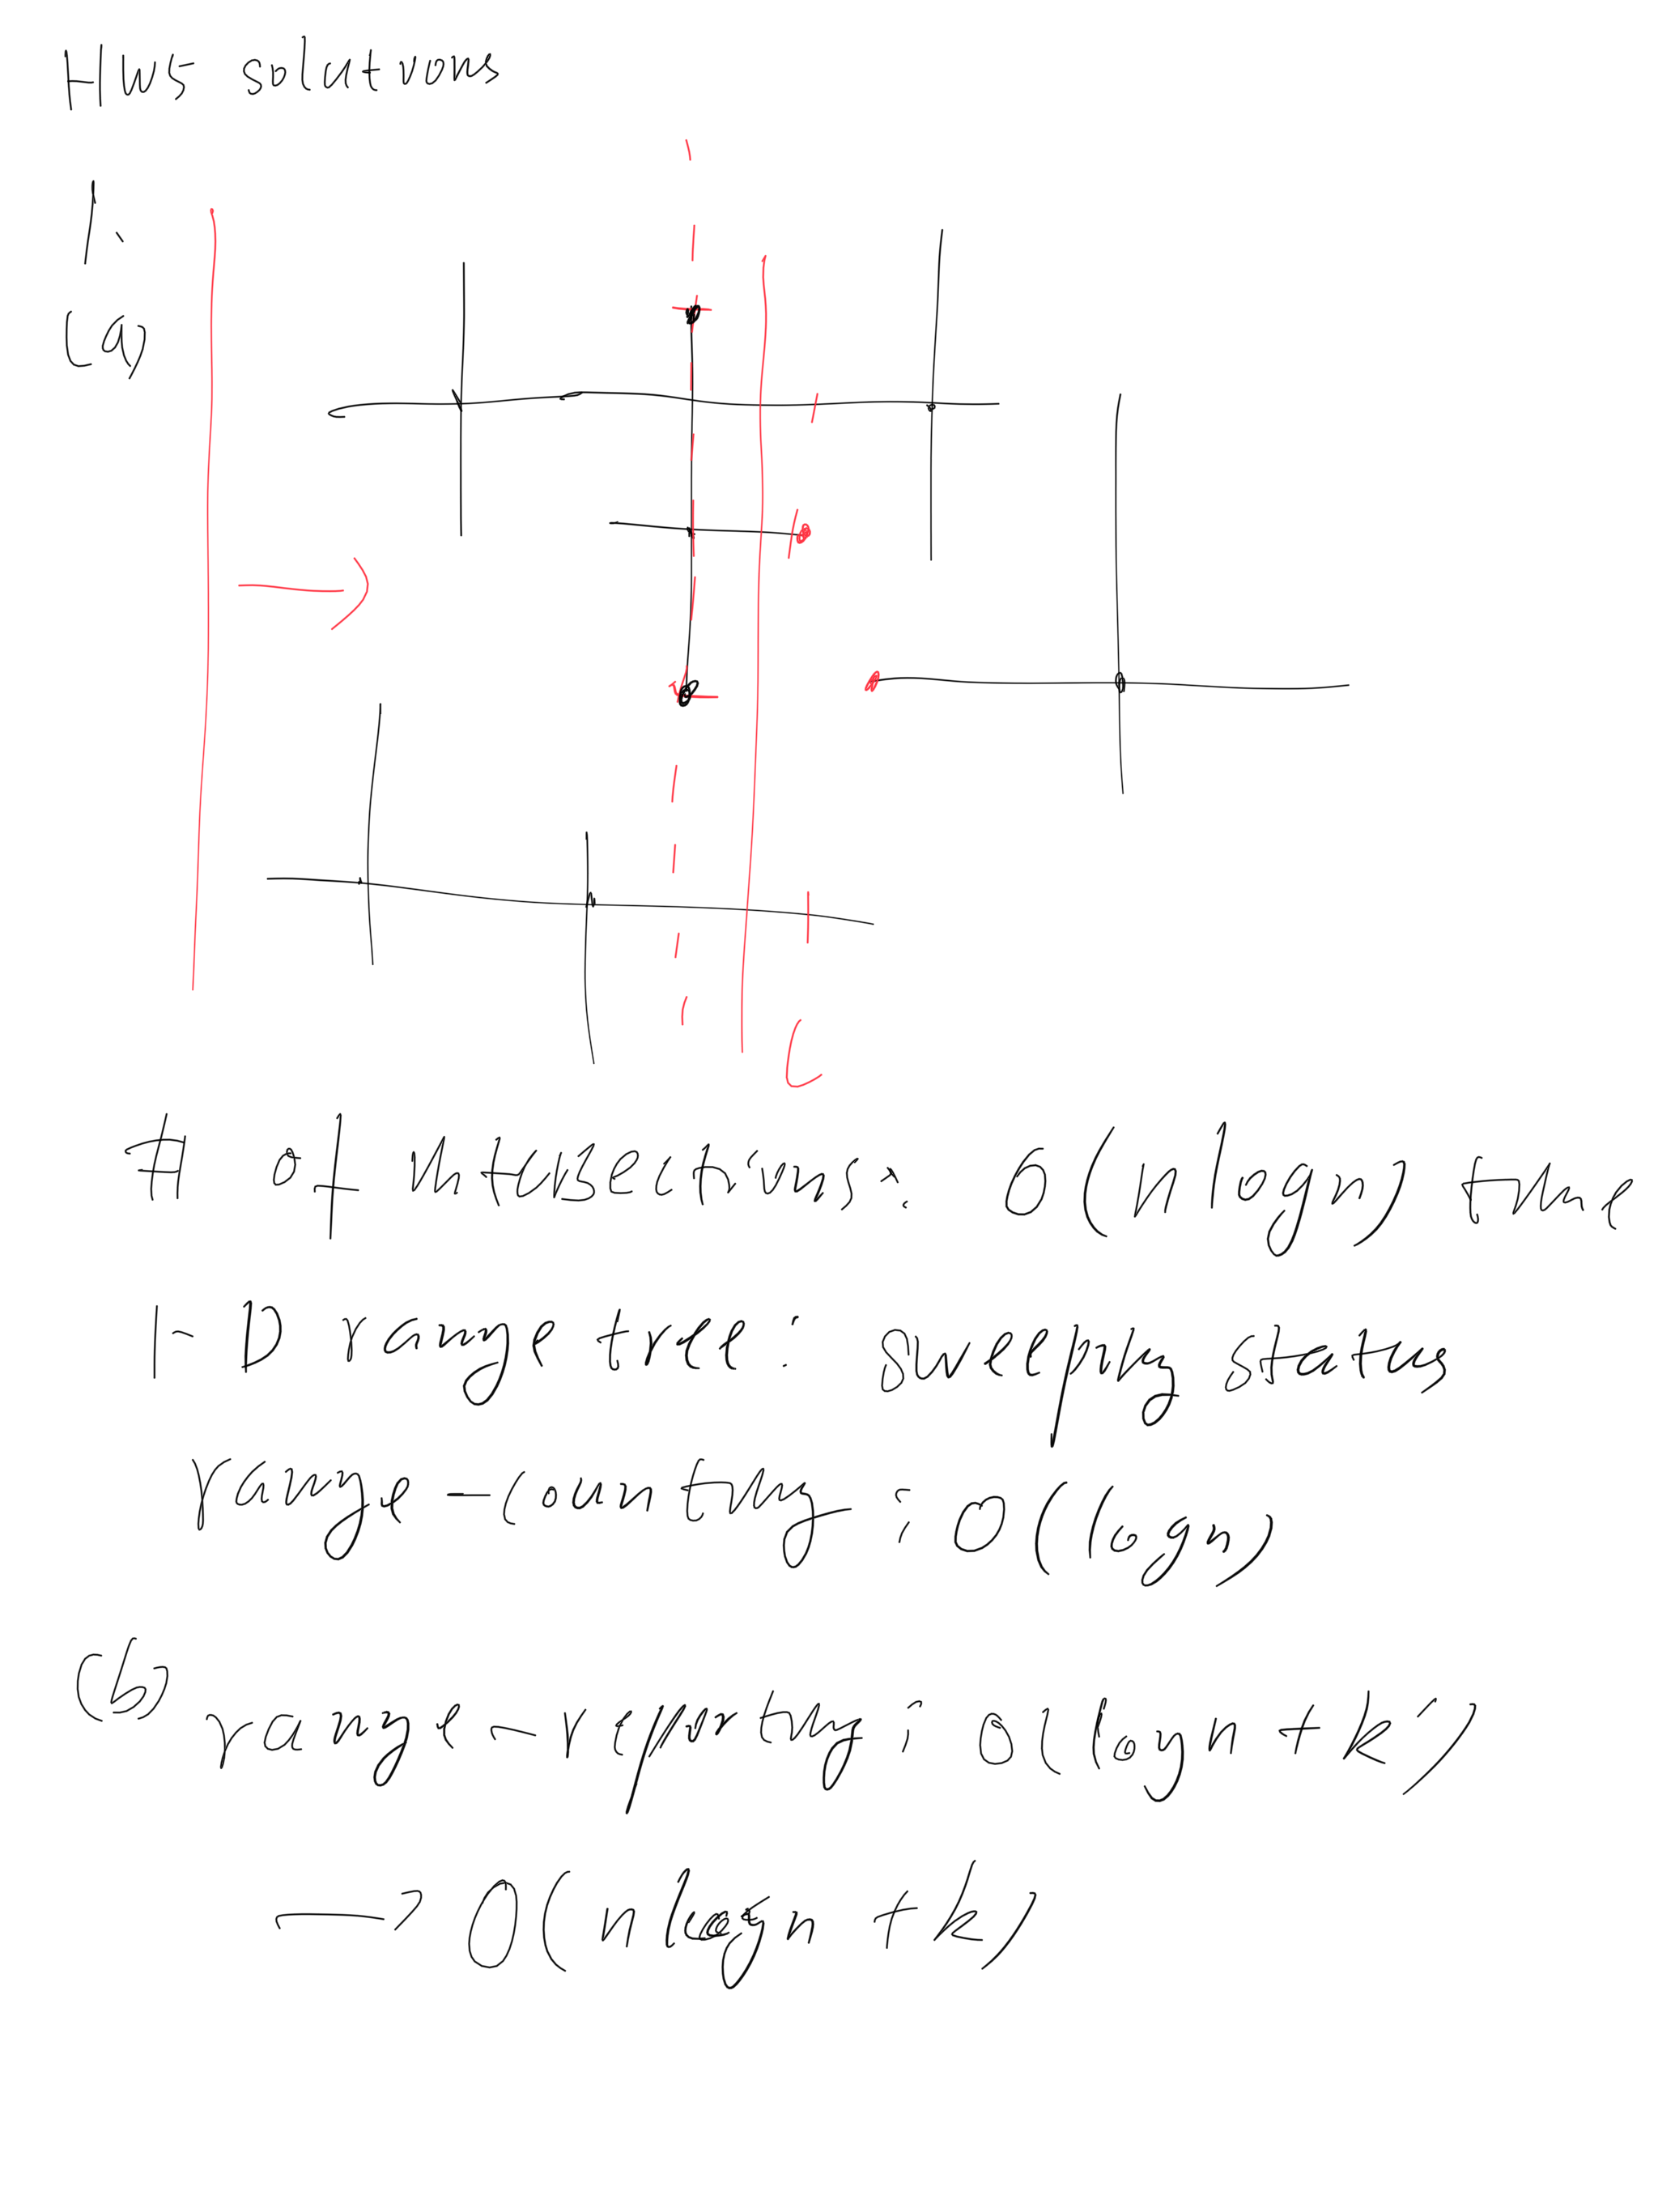 HW5 solutions
1.
(a)
L
# of intersections: O(n log n) time
1-D range tree: sweeping status
range-counting: O(log n)
(b)
range-reporting: O(log n + k')
→ O(n log n + k)